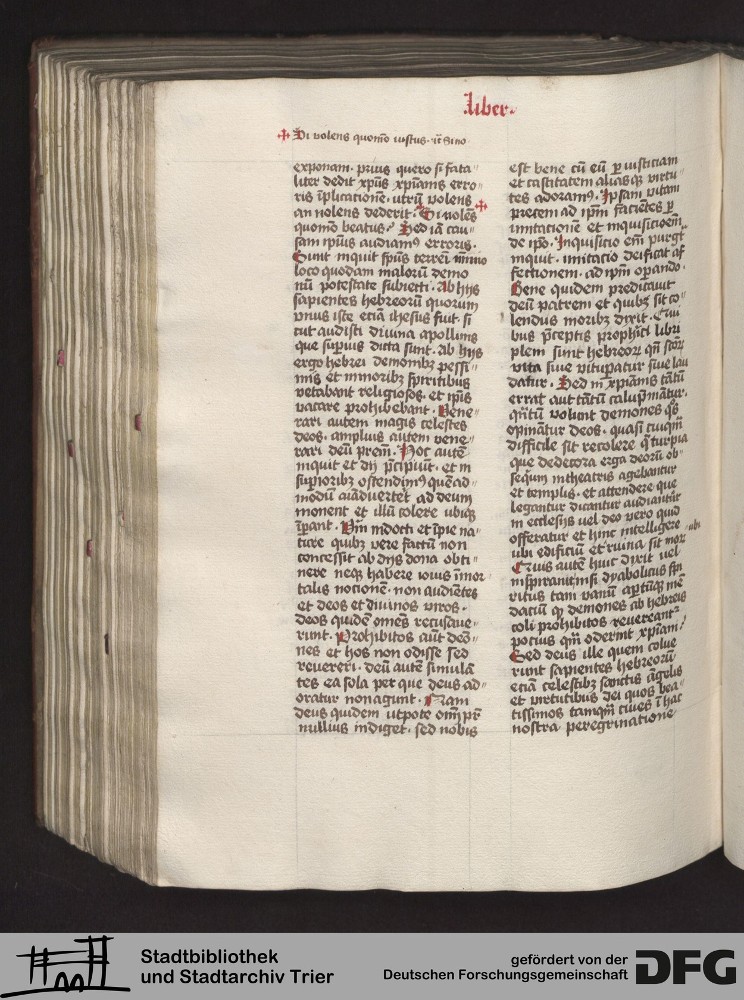 liber.
Si volens quomo iustus. ut Si no
exponam. prius quero si fata
liter dedit xpus xpianis erro
ris iplicatione. utru volens
an nolens dederit. Si voles
quomo beatus? Sed ia cau
sam ipius audiamus erroris.
Sunt inquit spus terreni mimo
loco quodam maloru demo
nu potestate subiecti. Ab hijs
sapientes hebreoru quorum
vnus iste etia ihesus fuit. si
cut audisti diuina apollinis
que superius dicta sunt. Ab hijs
ergo hebrei demonibz pessi
mis et minoribz spiritibus
vetabant religiosos. et ipis
vacare prohibebant. Vene
rari autem magis celestes
deos. amplius autem vene
rari deu prem. Hoc aute
inquit et dij pcipiut. et in
superioribz ostendimus quead
modu aiaduertet ad deum
monent et illu colere ubiqz
iperant. Veru indocti et ipie na
ture quibz vere factu non
concessit ab dijs dona obti
nere neqz habere iouis imor
talis notione. non audietes
et deos et diuinos viros.
deos quide omes recusaue
runt. Prohibitos aut deo
nes et hos non odisse sed
reuereri. deu aute simula
tes ea sola per que deus ad
oratur non agunt. Nam
deus quidem utpote omi pr
nullius indiget. sed nobis
est bene cu eu per iusticiam
et castitatem aliasqz virtu
tes adoramus. Ipsam vitam
precem ad ipm facietes per
imitatione et inquisicioem
de ipo. Inquisitio em purgt
inquit. imitatio deificat af
fectionem. ad ipm operando.
Bene quidem predicauit
deu patrem et quibz sit co
lendus moribz dixit. Cui
bus pceptis prophici libri
plem sunt hebreor qn scor
vita siue vituperatur siue lau
datur. Sed in xpianis tatu
errat aut tatu calupmatur.
qutu volunt demones qs
opinatur deos. quasi cuiqm
difficile sit recolere q turpia
que dedecora erga deoru ob
sequm in theatris agebantur
et templis. et attendere que
legantur dicantur audiantur
in ecclesijs vel deo vero quid
offeratur et hinc intelligere ubi
ubi edificiu et ruina sit mor
Cuis aute huic dixit vel
inspirauit nisi dyabolicus spi
ritus tam vanu apertuqz me
daciu qz demones ab hebreis
coli prohibitos reuereantur
pocius qm oderint xpiani?
Sed deus ille quem colue
runt sapientes hebreoru
etia celestibz sanctis angelis
et virtutibus dei quos bea
tissimos tamqm ciues i hac
nostra peregrinatione
Stadtbibliothek
und Stadtarchiv Trier
gefördert von der
Deutschen Forschungsgemeinschaft
DFG